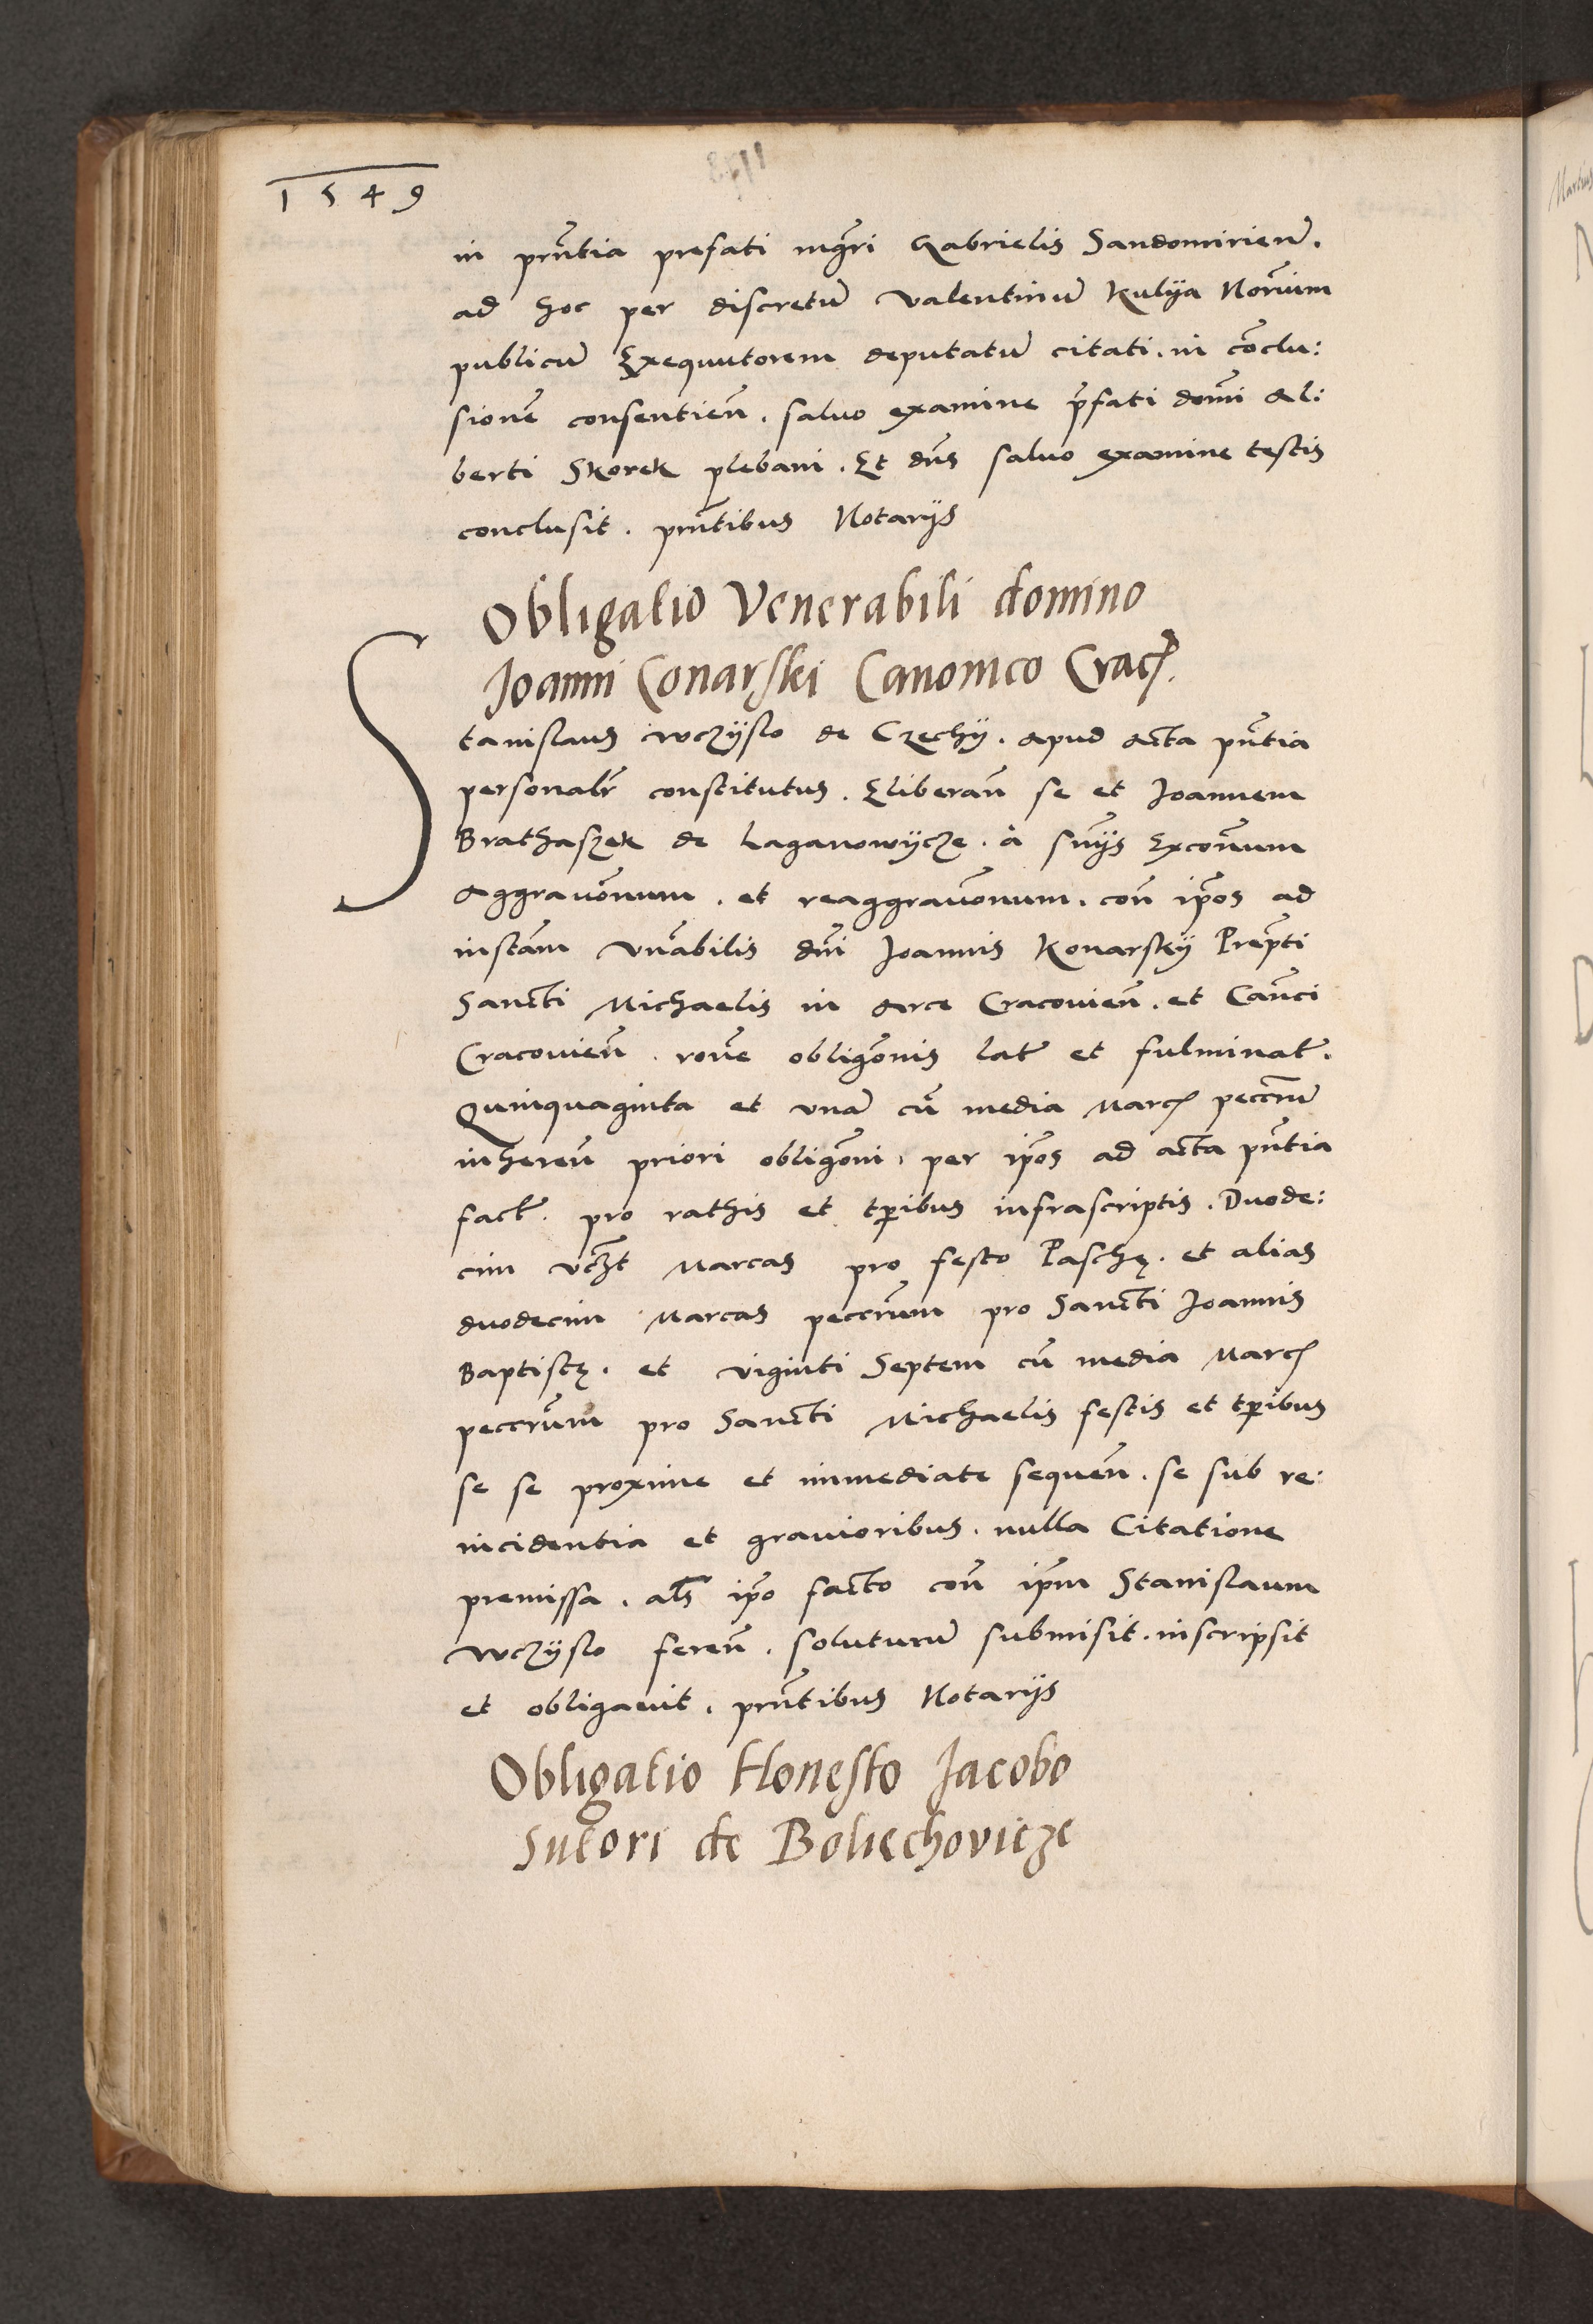 1549
in pñtia prefati mgři Gabrielis Sandomirieñ.
ad hoc per discretũ valentinũ Kulya Norium
publicũ Exequutorem deputatũ citati. in cõclu:
sionẽ consentieñ. saluo examine p̃fati domi Al:
berti Skorek plebani. Et dñs saluo examine testis
conclusit. pñtibus Notarijs
Obligatio Venerabili domino
Joanni Conarski Canonico Crac̃.
Stanislaus Wczyslo de Czechy. apud Acta pñtia
personalr̃ constitutus. Eliberañ se et Joannem
Brathaszek de Laganowycze. à sniĩs Excõnum
Aggrauõnum. et reaggrauõnum. coñ ip̃os ad
instãm vñabilis dñi Joannis Konarsky Prep̃ti
Sancti Michaelis in Arce Cracouieñ. et Cañci
Cracouieñ. rõne obligõnis lat̃ et fulminat̃.
Quinquaginta et vnã cũ media Marc̃ peccñũ
inhereñ priori obligõni. per ip̃os ad acta pñtia
fact̃. pro rathis et tp̃ibus infrascriptis. Duode:
cim vczt Marcas pro festo Paschę. et alias
duodecim Marcas peccñum pro Sancti Joannis
Baptistę. et viginti Septem cũ media Marc̃
peccñum pro Sancti Michaelis festis et tp̃ibus
se se proxime et immediate sequeñ. se sub re:
incidentia et grauioribus. nulla Citatione
premissa. als̃ ip̃o facto coñ ip̃m Stanislaum
Wczyslo fereñ. soluturũ submisit. inscripsit
et obligauit. pñtibus Notarijs
Obligatio Honesto Jacobo
Sutori de Boliechovicze